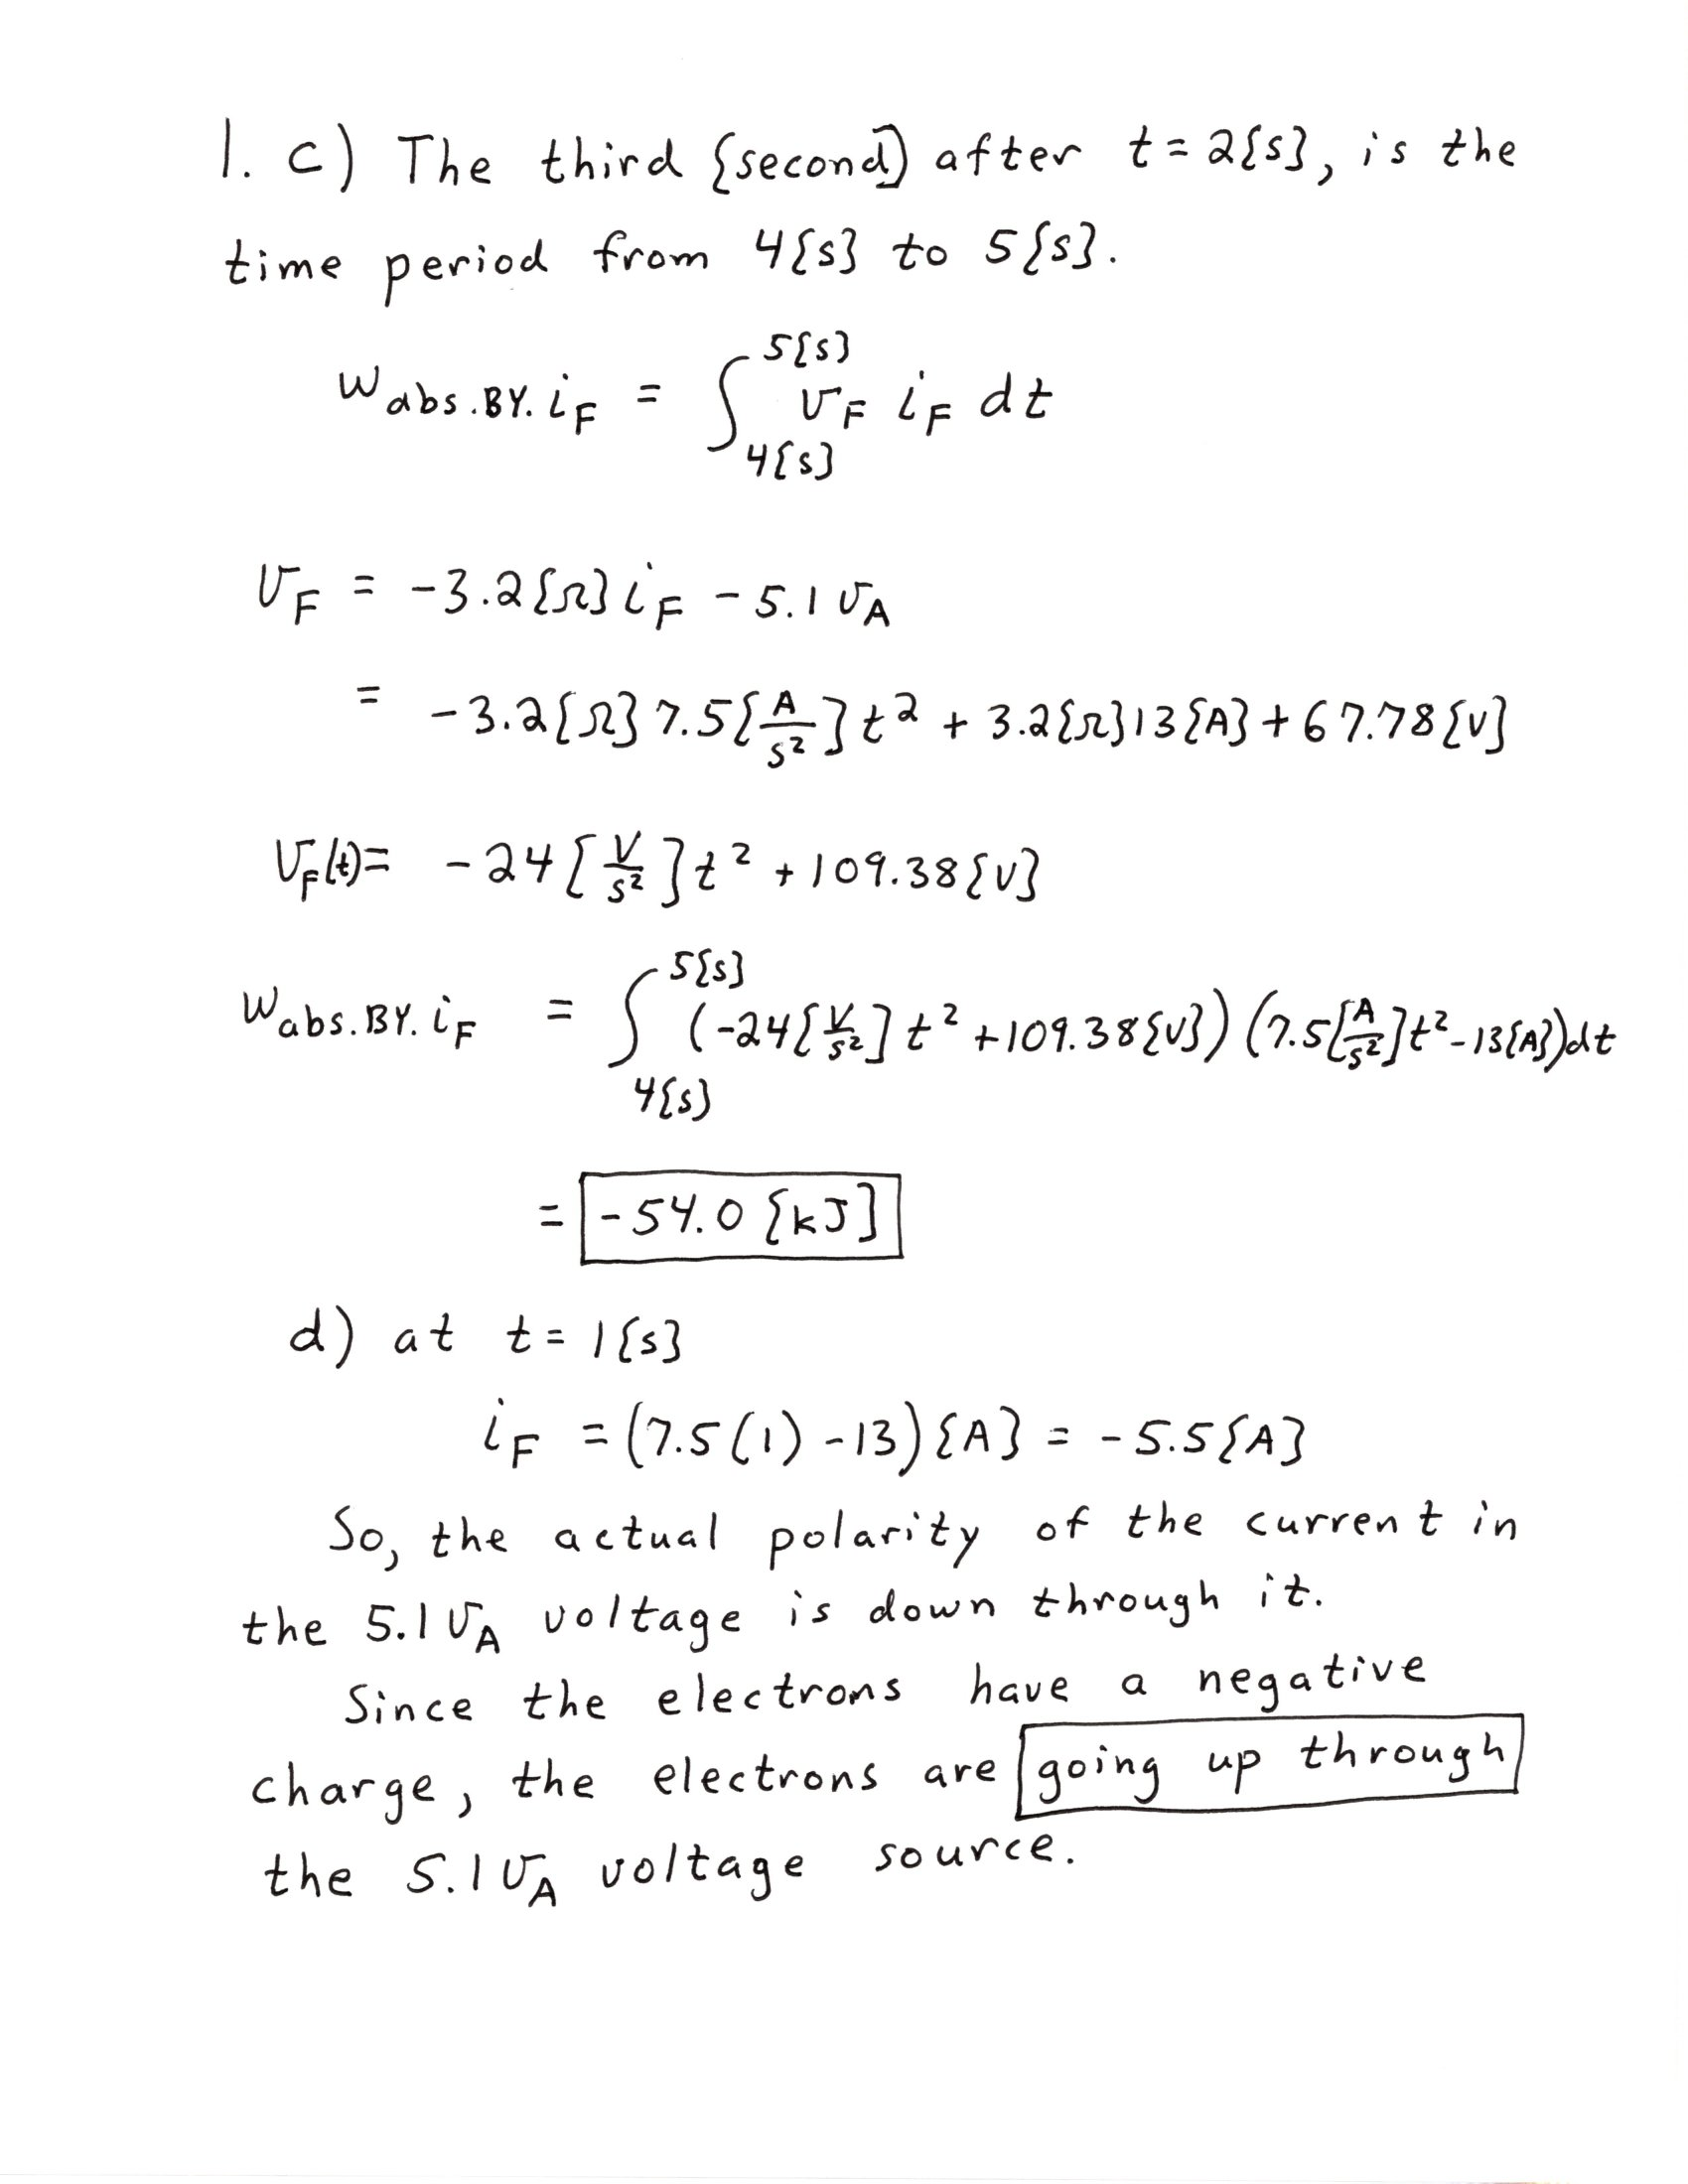 1. c) The third [second] after t = 2[s], is the
time period from 4[s] to 5[s].
w_abs.BY.i_F = ∫_4[s]^5[s] v_F i_F dt
v_F = -3.2[Ω] i_F - 5.1 v_A
= -3.2[Ω] 7.5[A/s²] t² + 3.2[Ω] 13[A] + 67.78[V]
v_F(t) = -24[V/s²] t² + 109.38[V]
w_abs.BY.i_F = ∫_4[s]^5[s] (-24[V/s²] t² + 109.38[V]) (7.5[A/s²] t² - 13[A]) dt
= -54.0 [kJ]
d) at t = 1[s]
i_F = (7.5(1) - 13)[A] = -5.5[A]
So, the actual polarity of the current in
the 5.1 v_A voltage is down through it.
Since the electrons have a negative
charge, the electrons are going up through
the 5.1 v_A voltage source.